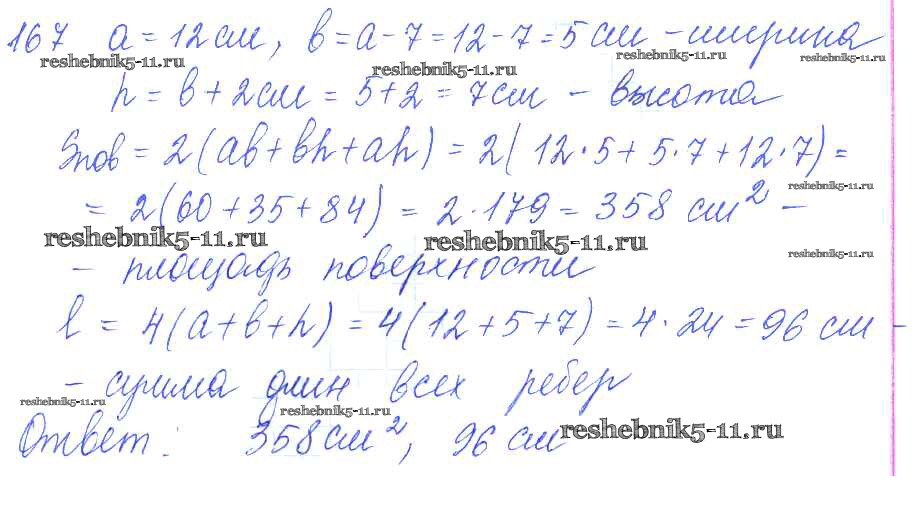 167 a = 12 см, b = a - 7 = 12 - 7 = 5 см - ширина
reshebnik5-11.ru reshebnik5-11.ru reshebnik5-11.ru reshebnik5-11.ru
h = b + 2 см = 5 + 2 = 7 см - высота
Sпов = 2(ab + bh + ah) = 2(12·5 + 5·7 + 12·7) =
reshebnik5-11.ru
= 2(60 + 35 + 84) = 2·179 = 358 см² -
reshebnik5-11.ru reshebnik5-11.ru
reshebnik5-11.ru
- площадь поверхности
l = 4(a + b + h) = 4(12 + 5 + 7) = 4·24 = 96 см -
- сумма длин всех ребер
reshebnik5-11.ru reshebnik5-11.ru
Ответ: 358 см², 96 см
reshebnik5-11.ru